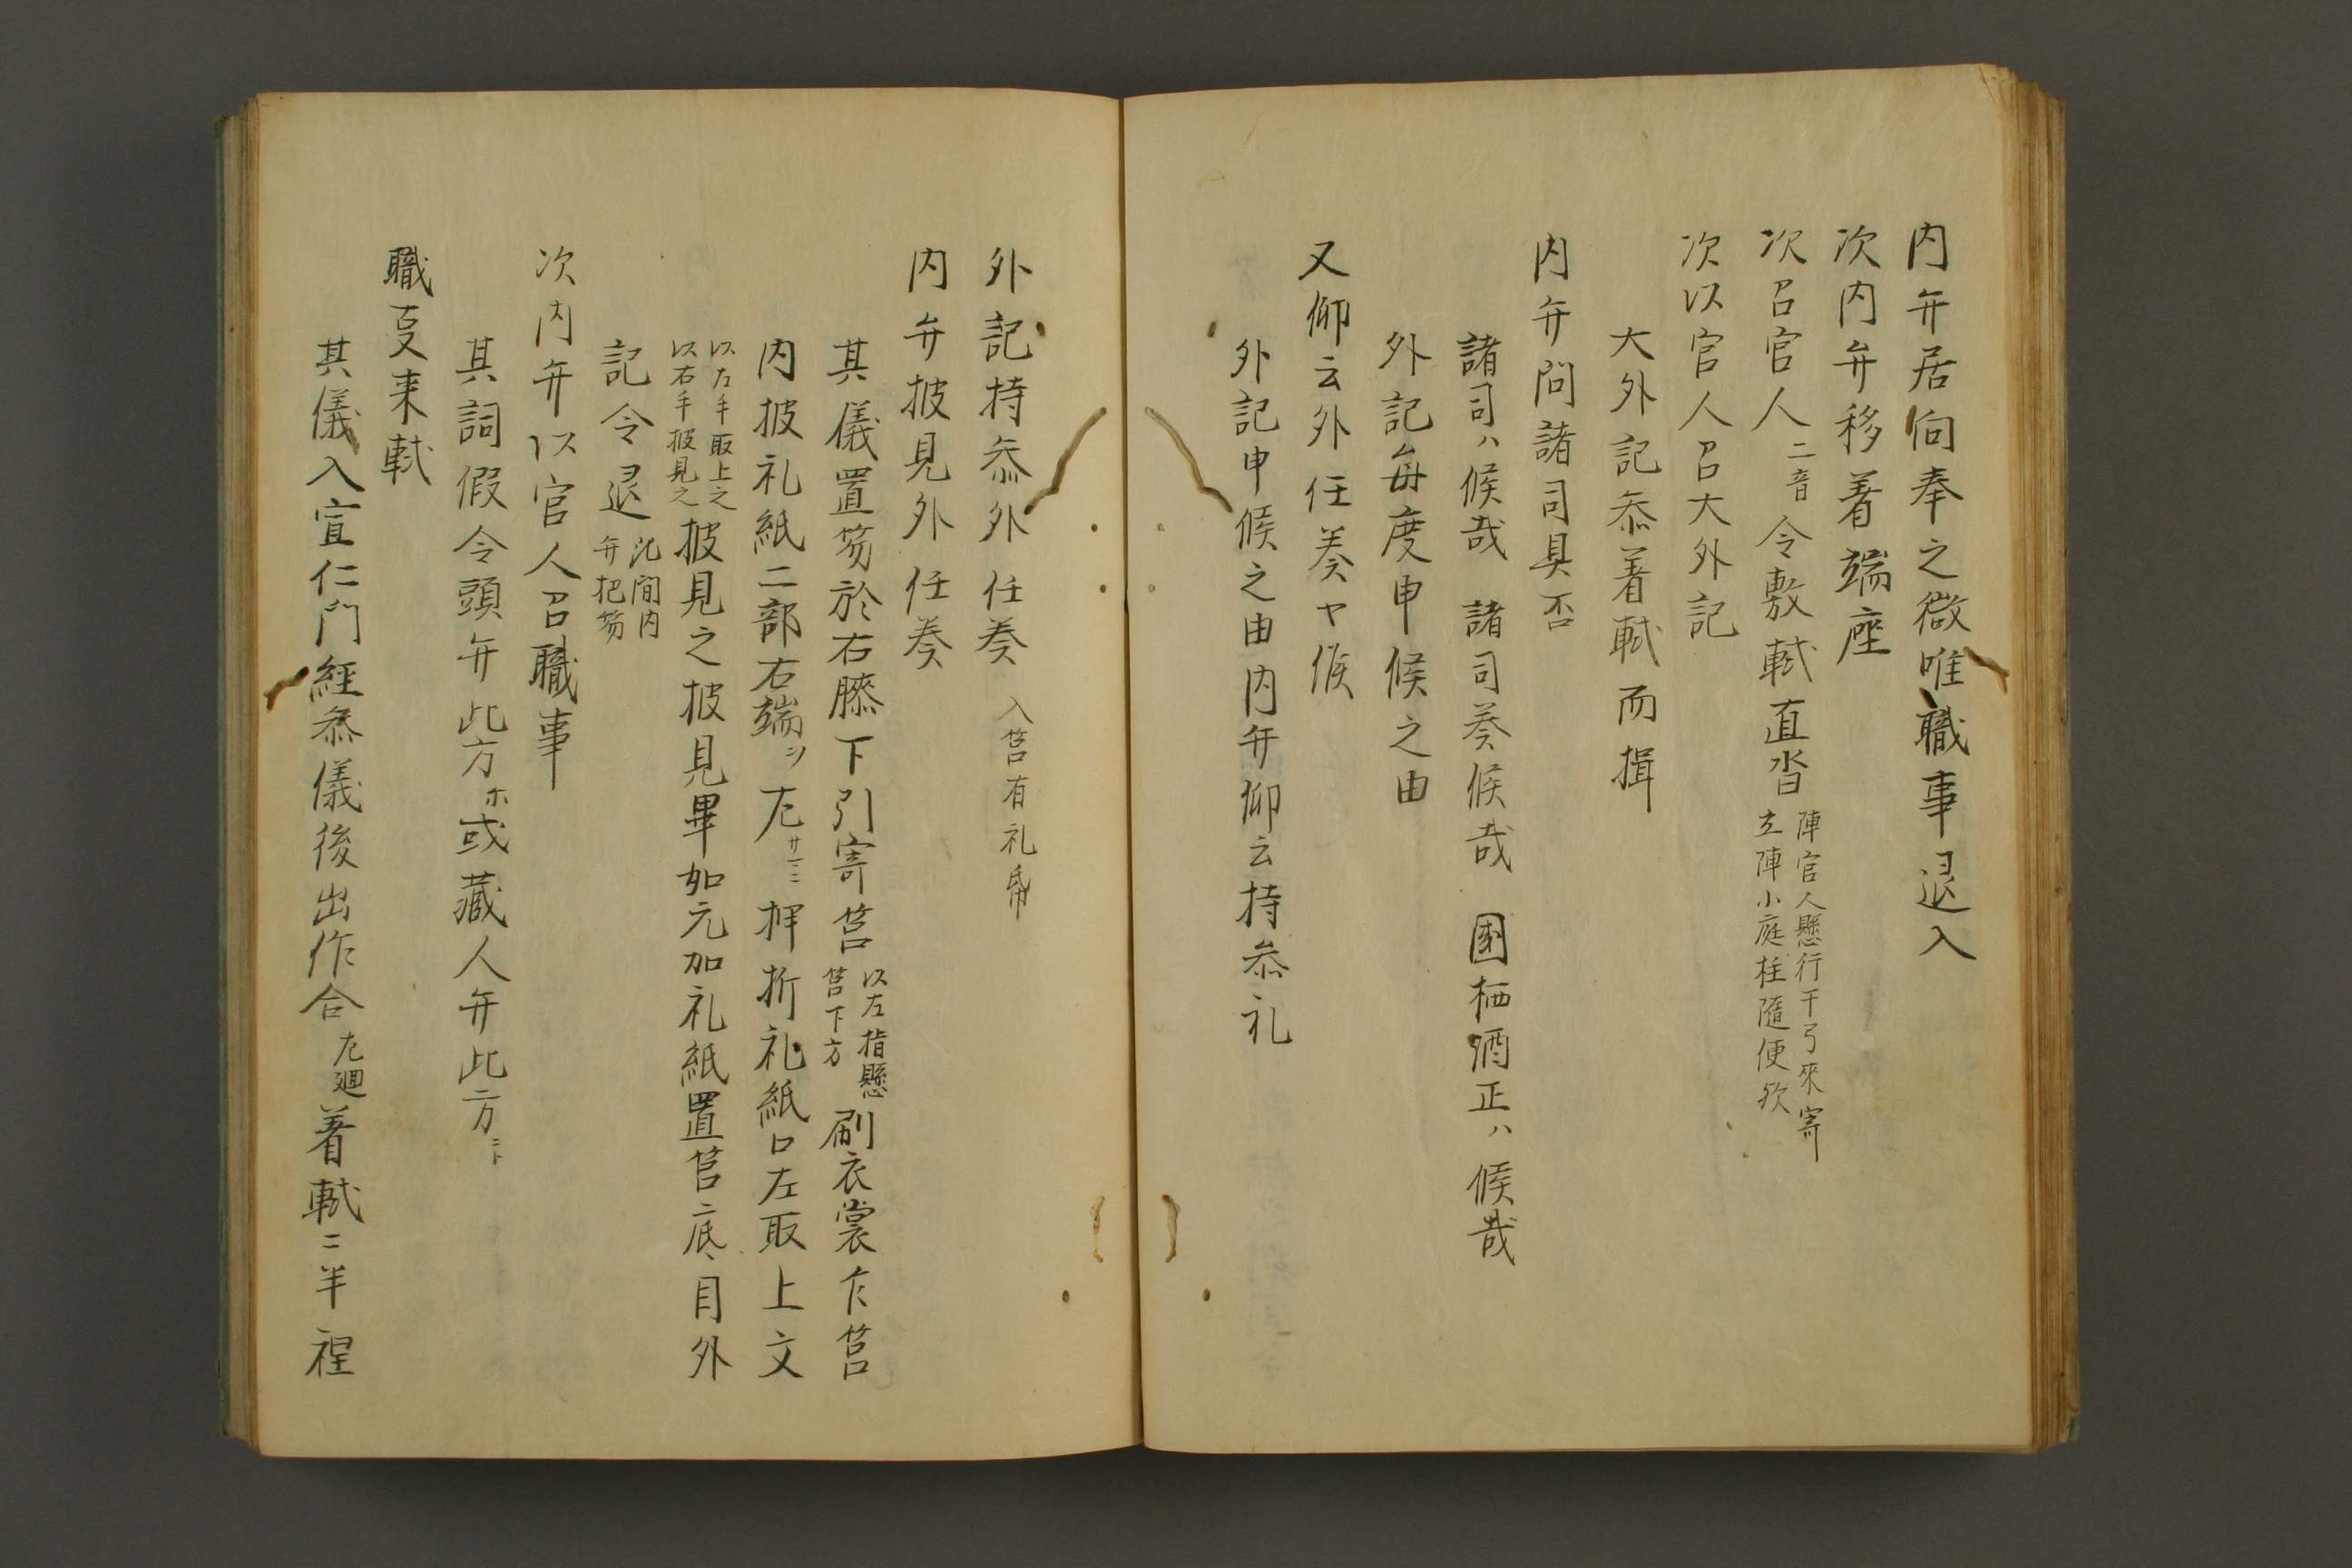 内弁居向奉之微唯職事退入
次内弁移着端座
次召官人二音令敷軾直沓陣官人懸行干弓來寄立陣小庭柱隨便欤
次以官人召大外記
大外記叅着軾而揖
内弁問諸司具否
諸司ハ候哉 諸司奏候哉 國栖酒正ハ候哉
外記毎度申候之由
又仰云外任奏ヤ候
外記申候之由内弁仰云持叅礼
外記持叅外任奏 入筥有礼帋
内弁披見外任奏
其儀置笏於右膝下引寄筥以左指懸筥下方刷衣裳乍筥
内披礼紙二部右端ヲ左サニ押折礼紙口左取上文
以左手取上之以右手披見之披見之披見畢如元加礼紙置筥底目外
記令退此間内弁把笏
次内弁以官人召職事
其詞假令頭弁此方ホ或蔵人弁此方ニト
職㕝来軾
其儀入宜仁門經叅儀後出作合左廻着軾ニ半裎